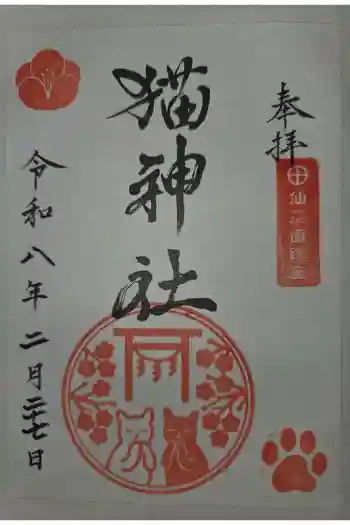 奉拝
猫神社
令和八年二月二十七日